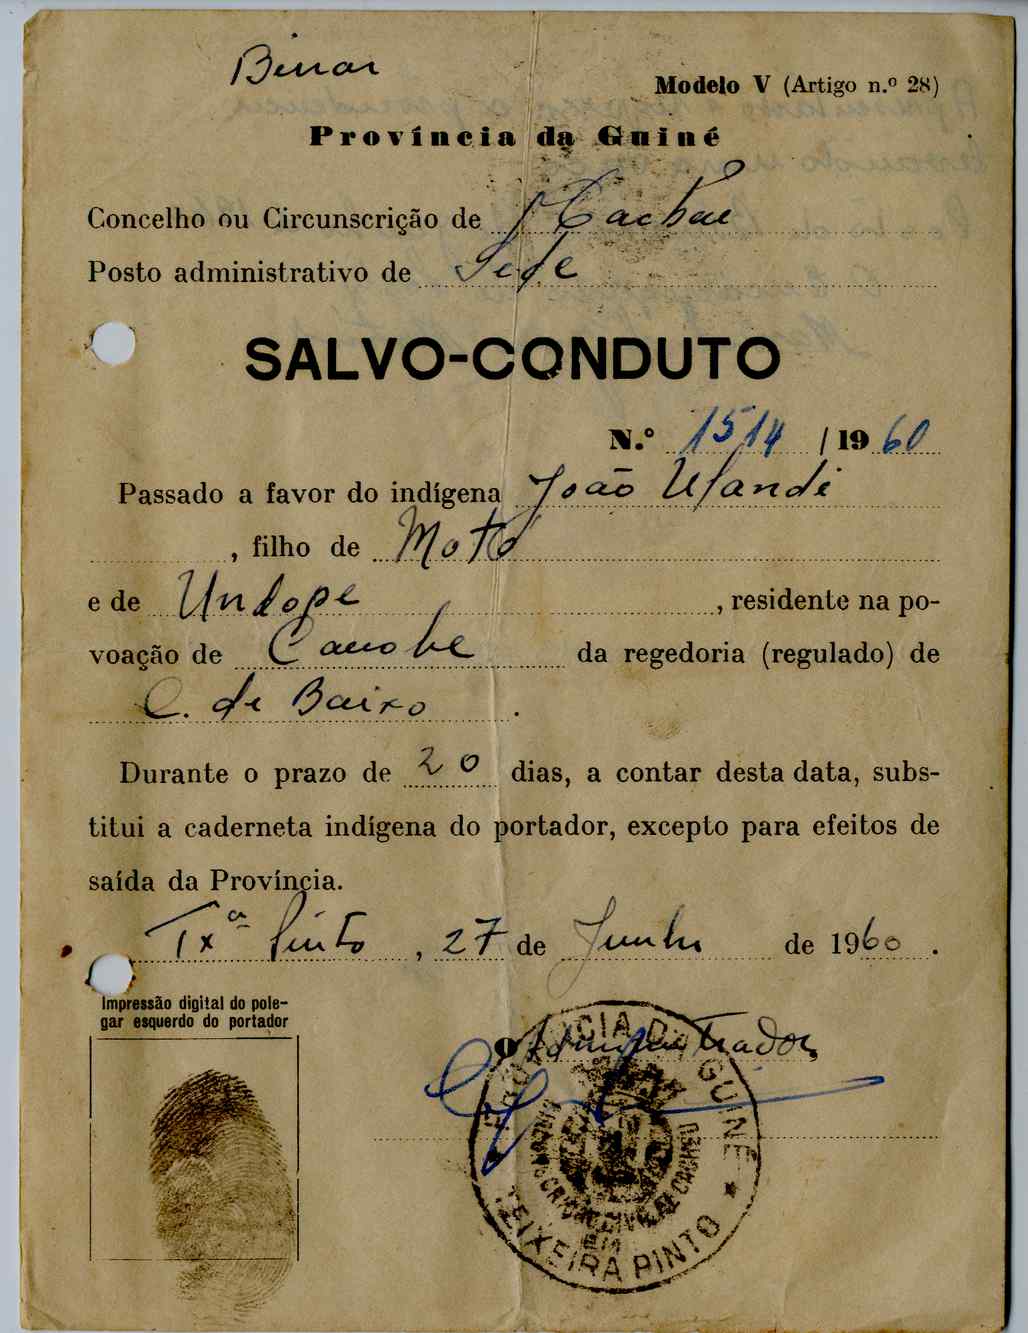 Modelo V (Artigo n.º 28)
Província da Guiné
Concelho ou Circunscrição de Cacheu
Posto administrativo de Sede
SALVO-CONDUTO
N.º 1514 / 1960
Passado a favor do indígena João
, filho de Moto
e de Undope , residente na po-
voação de da regedoria (regulado) de
C. de Baixo .
Durante o prazo de 20 dias, a contar desta data, subs-
titui a caderneta indígena do portador, excepto para efeitos de
saída da Província.
Tx.ª Pinto , 27 de Junho de 1960 .
Impressão digital do pole-
gar esquerdo do portador
O Administrador,
PROVÍNCIA DA GUINÉ
TEIXEIRA PINTO